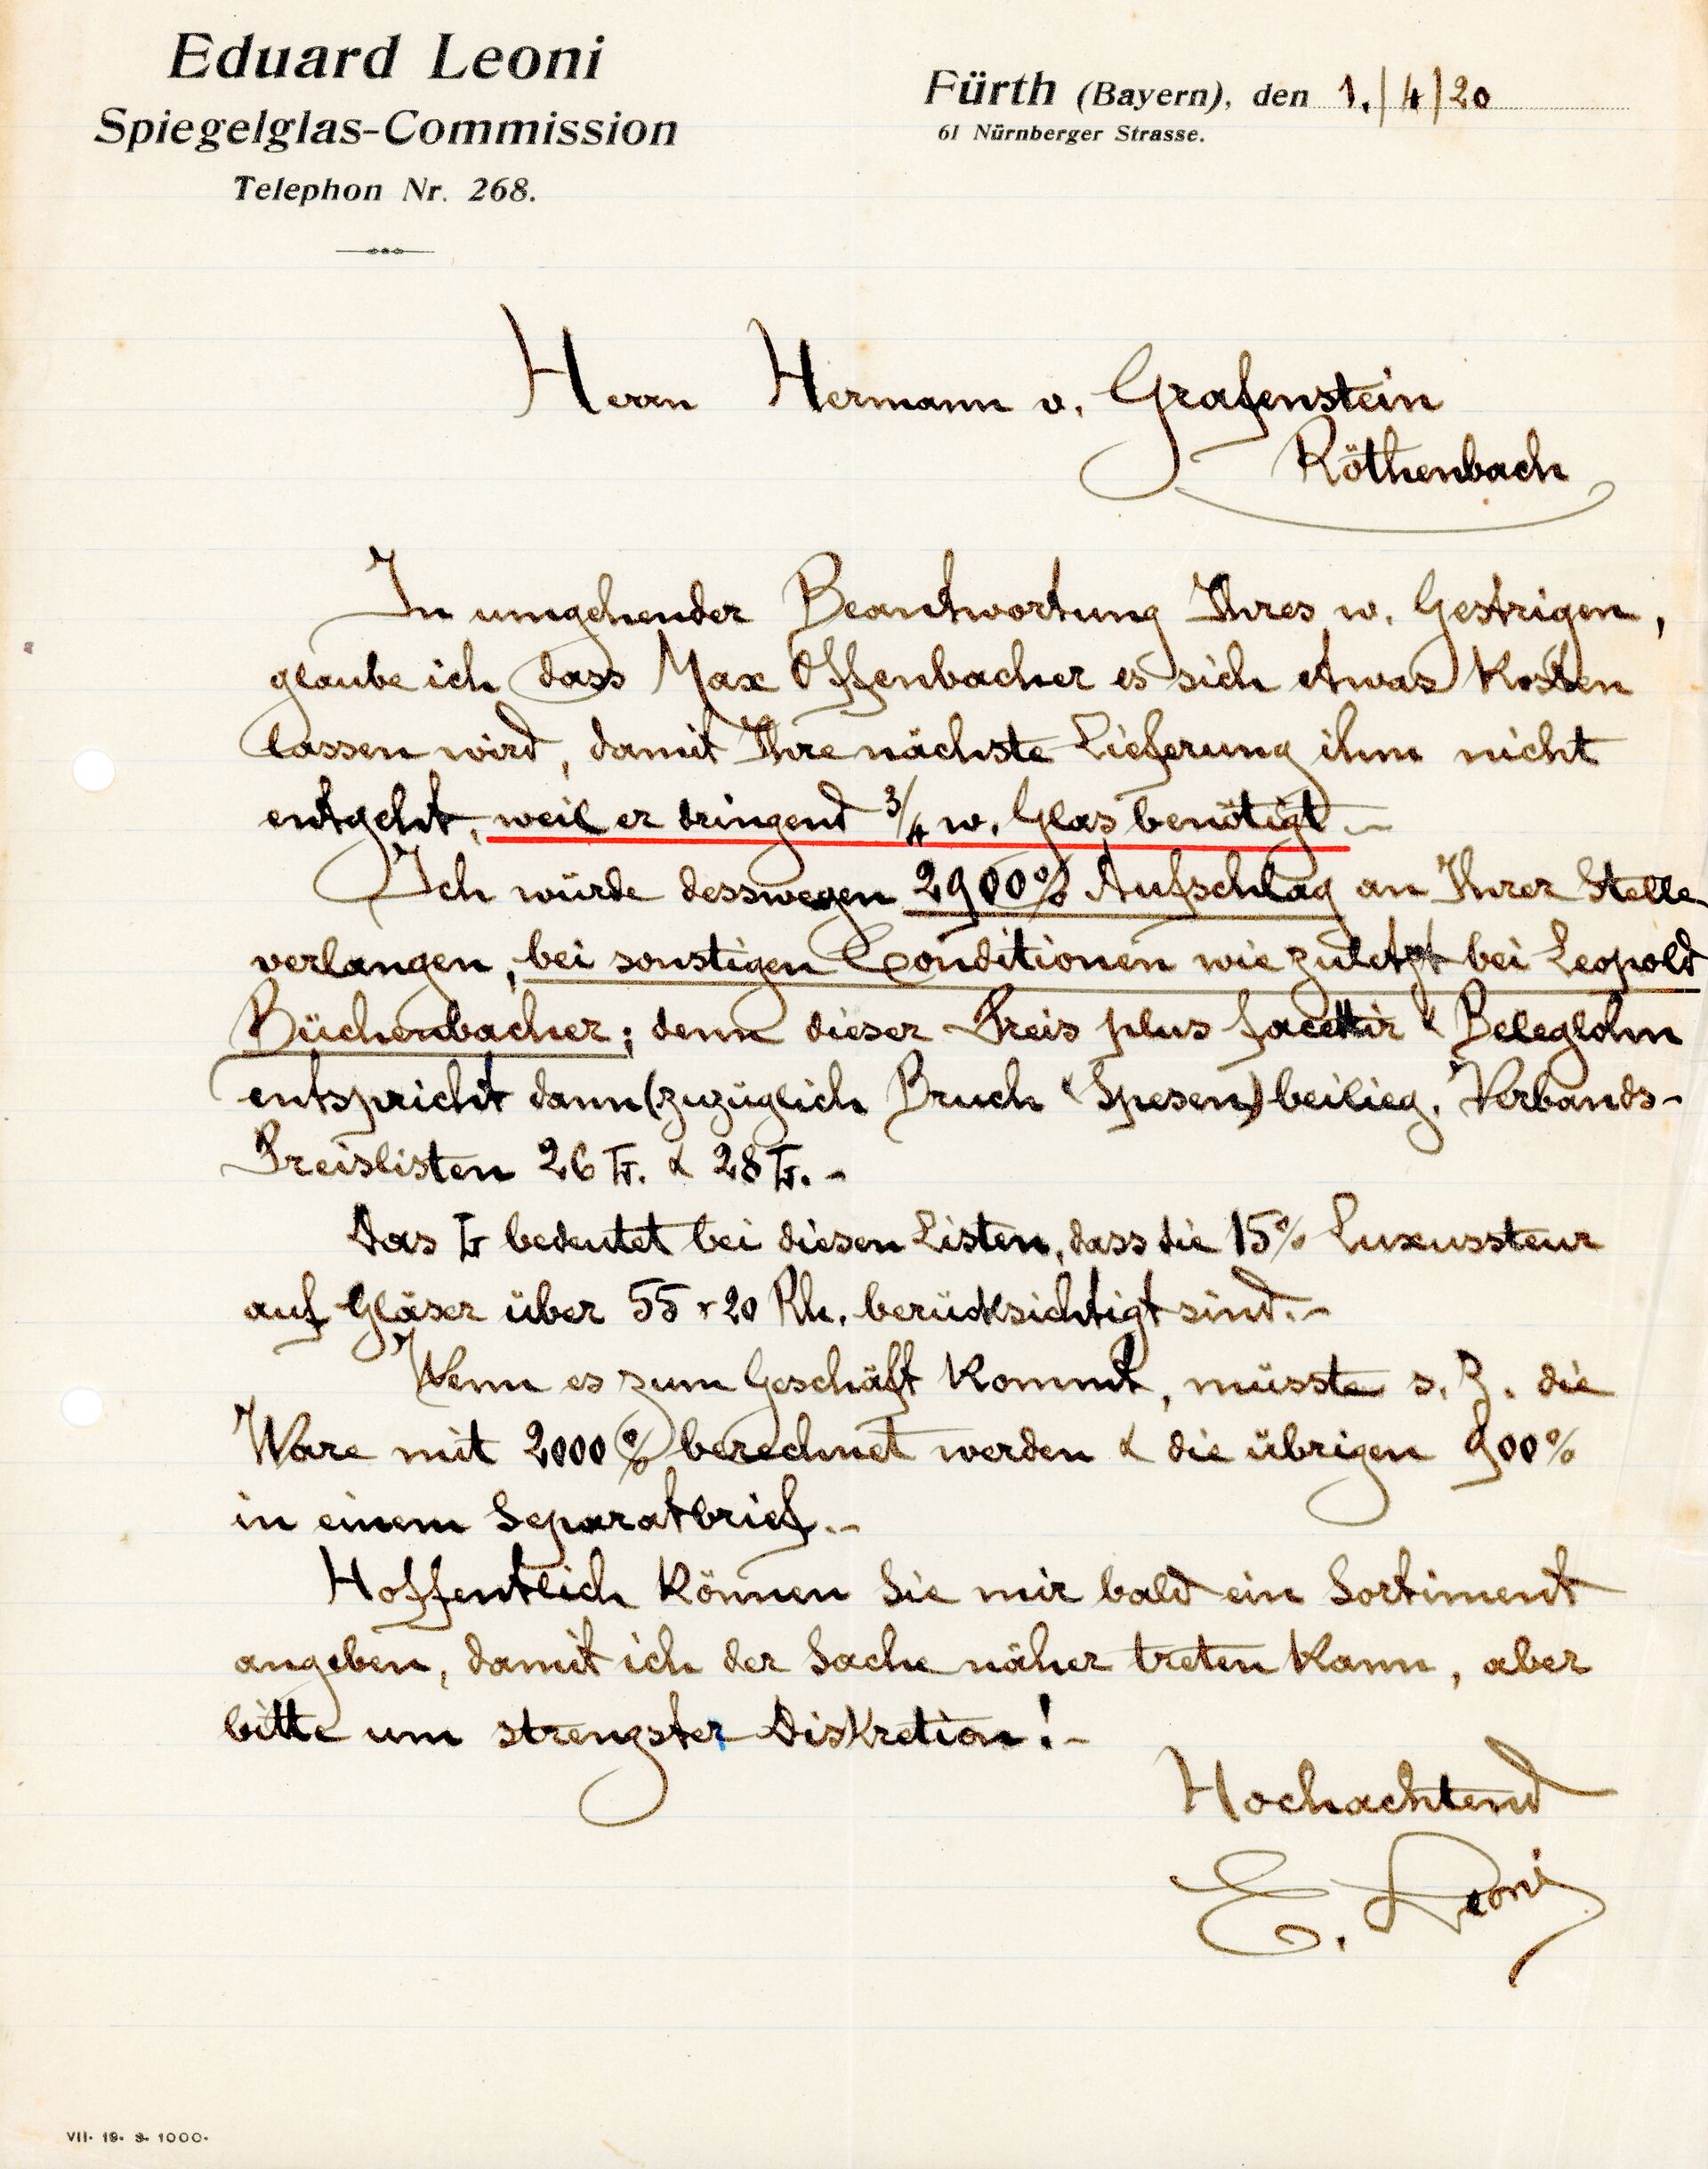 Eduard Leoni
Spiegelglas-Commission
Telephon Nr. 268.
Fürth (Bayern), den 1./4/20
61 Nürnberger Strasse.
Herrn Hermann v. Grafenstein
Röthenbach
In umgehender Beantwortung Ihres w. Gestrigen,
glaube ich dass Max Offenbacher es sich etwas kosten
lassen wird, damit Ihre nächste Lieferung ihm nicht
entgeht, weil er dringend 3/4 w. Glas benötigt.-
Ich würde desswegen 2900% Aufschlag an Ihrer Stelle
verlangen, bei sonstigen Conditionen wie zuletzt bei Leopold
Büchenbacher; denn dieser Preis plus facettir & Beleglohn
entspricht dann (zuzüglich Bruch & Spesen) beilieg. Verbands-
Preislisten 26 Tr. & 28 Tr.-
Das Tr bedeutet bei diesen Listen, dass die 15% Luxussteur
auf Gläser über 55 x 20 Rh. berücksichtigt sind.-
Wenn es zum Geschäft kommt, müsste s. Z. die
Ware mit 2000% berechnet werden & die übrigen 900%
in einem Separatbrief.-
Hoffentlich können Sie mir bald ein Sortiment
angeben, damit ich der Sache näher treten kann, aber
bitte um strengster Diskretion!-
Hochachtend
E. Leoni
VII. 19. 1000.